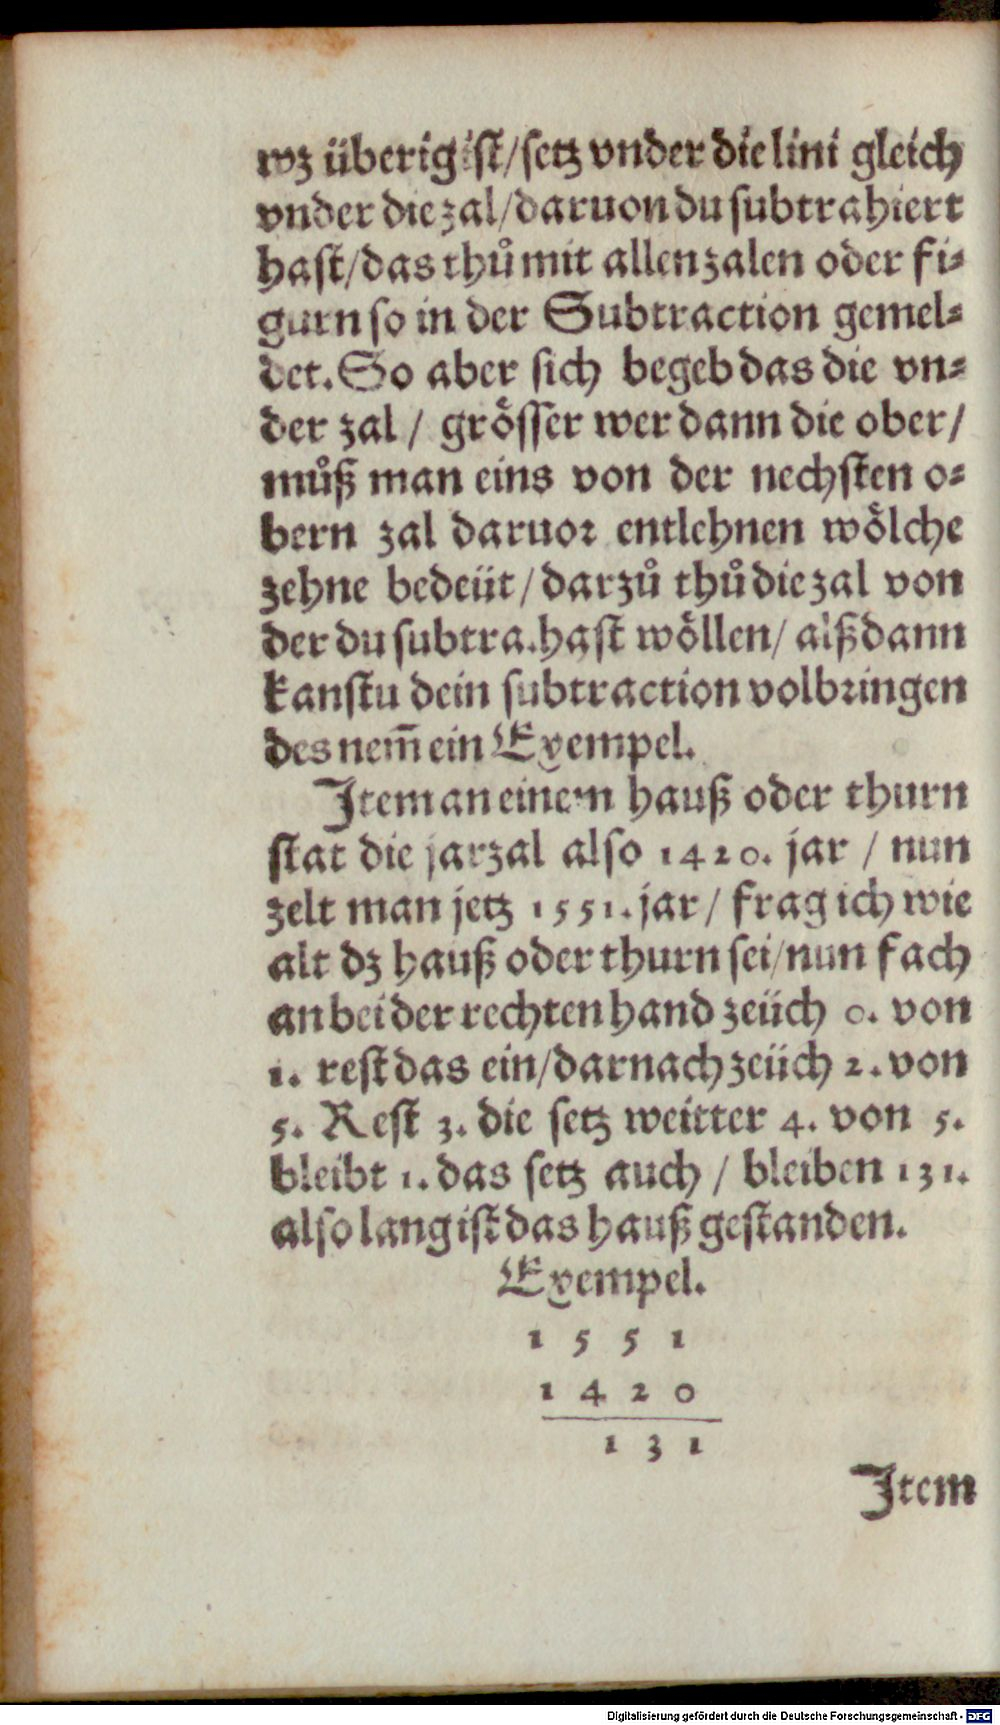 wz überig ist/setz vnder die lini gleich
vnder die zal/daruon du subtrahiert
hast/das thů mit allen zalen oder fi⸗
gurn so in der Subtraction gemel⸗
det. So aber sich begeb das die vn⸗
der zal / grösser wer dann die ober/
můß man eins von der nechsten o⸗
bern zal daruor entlehnen wölche
zehne bedeüt/darzů thů die zal von
der du subtra.hast wöllen/alßdann
kanstu dein subtraction volbringen
des nem̄ ein Exempel.
Item an einem hauß oder thurn
stat die jarzal also 1420. jar / nun
zelt man jetz 1551. jar/ frag ich wie
alt dz hauß oder thurn sei/nun fach
an bei der rechten hand zeüch 0. von
1. rest das ein/darnach zeüch 2. von
5. Rest 3. die setz weitter 4. von 5.
bleibt 1. das setz auch / bleiben 131.
also lang ist das hauß gestanden.
Exempel.
1 5 5 1
1 4 2 0
1 3 1
Item
Digitalisierung gefördert durch die Deutsche Forschungsgemeinschaft - DFG